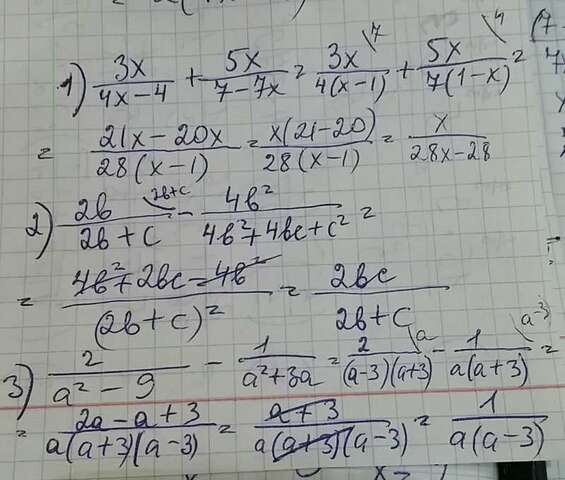 1) 3x/(4x-4) + 5x/(7-7x) = 3x\7/(4(x-1)) + 5x\4/(7(1-x)) =
= (21x-20x)/(28(x-1)) = x(21-20)/(28(x-1)) = x/(28x-28)
2) 2b\2b+c/(2b+c) - 4b²/(4b²+4bc+c²) =
= (4b²+2bc-4b²)/(2b+c)² = 2bc/(2b+c)
3) 2/(a²-9) - 1/(a²+3a) = 2\a/((a-3)(a+3)) - 1\a-3/(a(a+3)) =
= (2a-a+3)/(a(a+3)(a-3)) = (a+3)/(a(a+3)(a-3)) = 1/(a(a-3))